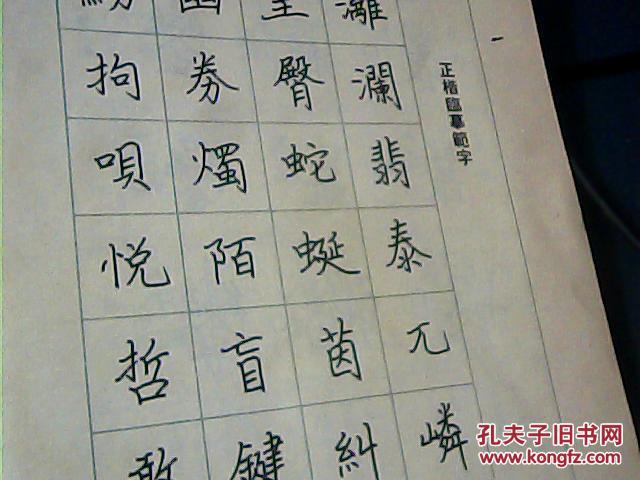 一
正楷臨摹範字
灕瀾翡泰兀嶙
臀蛇蜒茵糾
券燭陌盲鍵
拘唄悦哲敢
孔夫子旧书网
www.kongfz.com